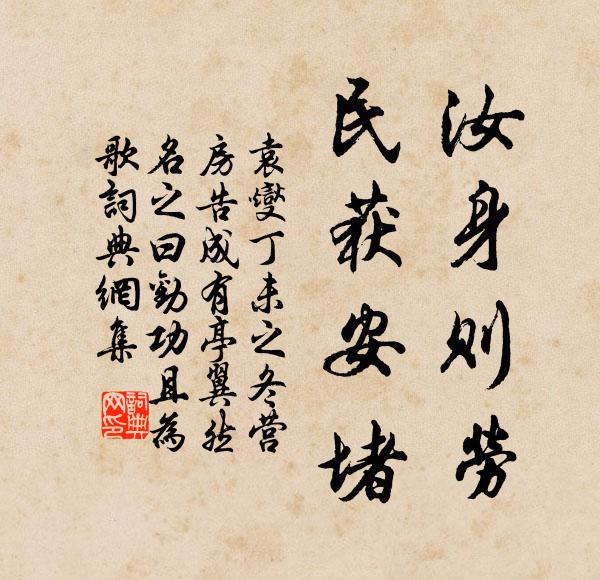 汝身則勞
民获安堵
袁燮丁未之冬營
房告成有亭翼然
名之曰勸功且為
歌詞典網集
詞典
网印